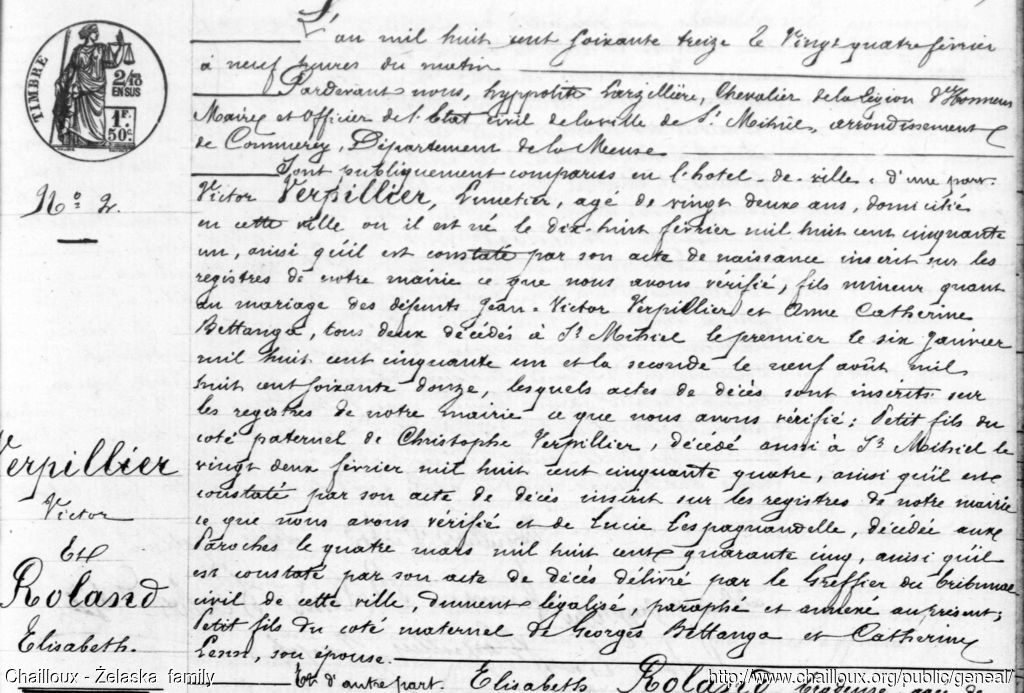 TIMBRE
2/10
EN SUS
1F.
50c.
L'an mil huit cent soixante treize le Vingt quatre février
à neuf heures du matin
Pardevant nous, hyppolite Larzillière, Chevalier de la Légion d'Honneur
Maire et officier de l'Etat civil de la ville de St. Mihiel, arrondissement
de Commercy, Département de la Meuse
Sont publiquement comparus en l'hotel-de-ville, d'une part.
No. 2.
Victor Verpillier, Lunetier, agé de vingt deux ans, domicilié
en cette ville où il est né le dix-huit février mil huit cent cinquante
un, ainsi qu'il est constaté par son acte de naissance inscrit sur les
registres de notre mairie ce que nous avons vérifié, fils mineur quant
au mariage des défunts Jean-Victor Verpillier et Anne Catherine
Bettanga, tous deux décédés à St Mihiel le premier le six Janvier
mil huit cent cinquante un et la seconde le neuf août mil
huit cent soixante douze, lesquels actes de décès sont inscrits sur
les registres de notre mairie ce que nous avons vérifié; Petit fils du
coté paternel de Christophe Verpillier, décédé aussi à St Mihiel le
vingt deux février mil huit cent cinquante quatre, ainsi qu'il est
constaté par son acte de décès inscrit sur les registres de notre mairie
ce que nous avons vérifié et de Lucie Lespagnandelle, décédée aux
Paroches le quatre mars mil huit cent quarante cinq, ainsi qu'il
est constaté par son acte de décès délivré par le Greffier du tribunal
civil de cette ville, dument légalisé, paraphé et annexé au présent;
Petit fils du coté maternel de Georges Bettanga et Catherine
son épouse.
Et d'autre part. Elisabeth Roland
Verpillier
Victor
Et
Roland
Elisabeth.
Chailloux - Żelaska family
http://www.chailloux.org/public/geneal/